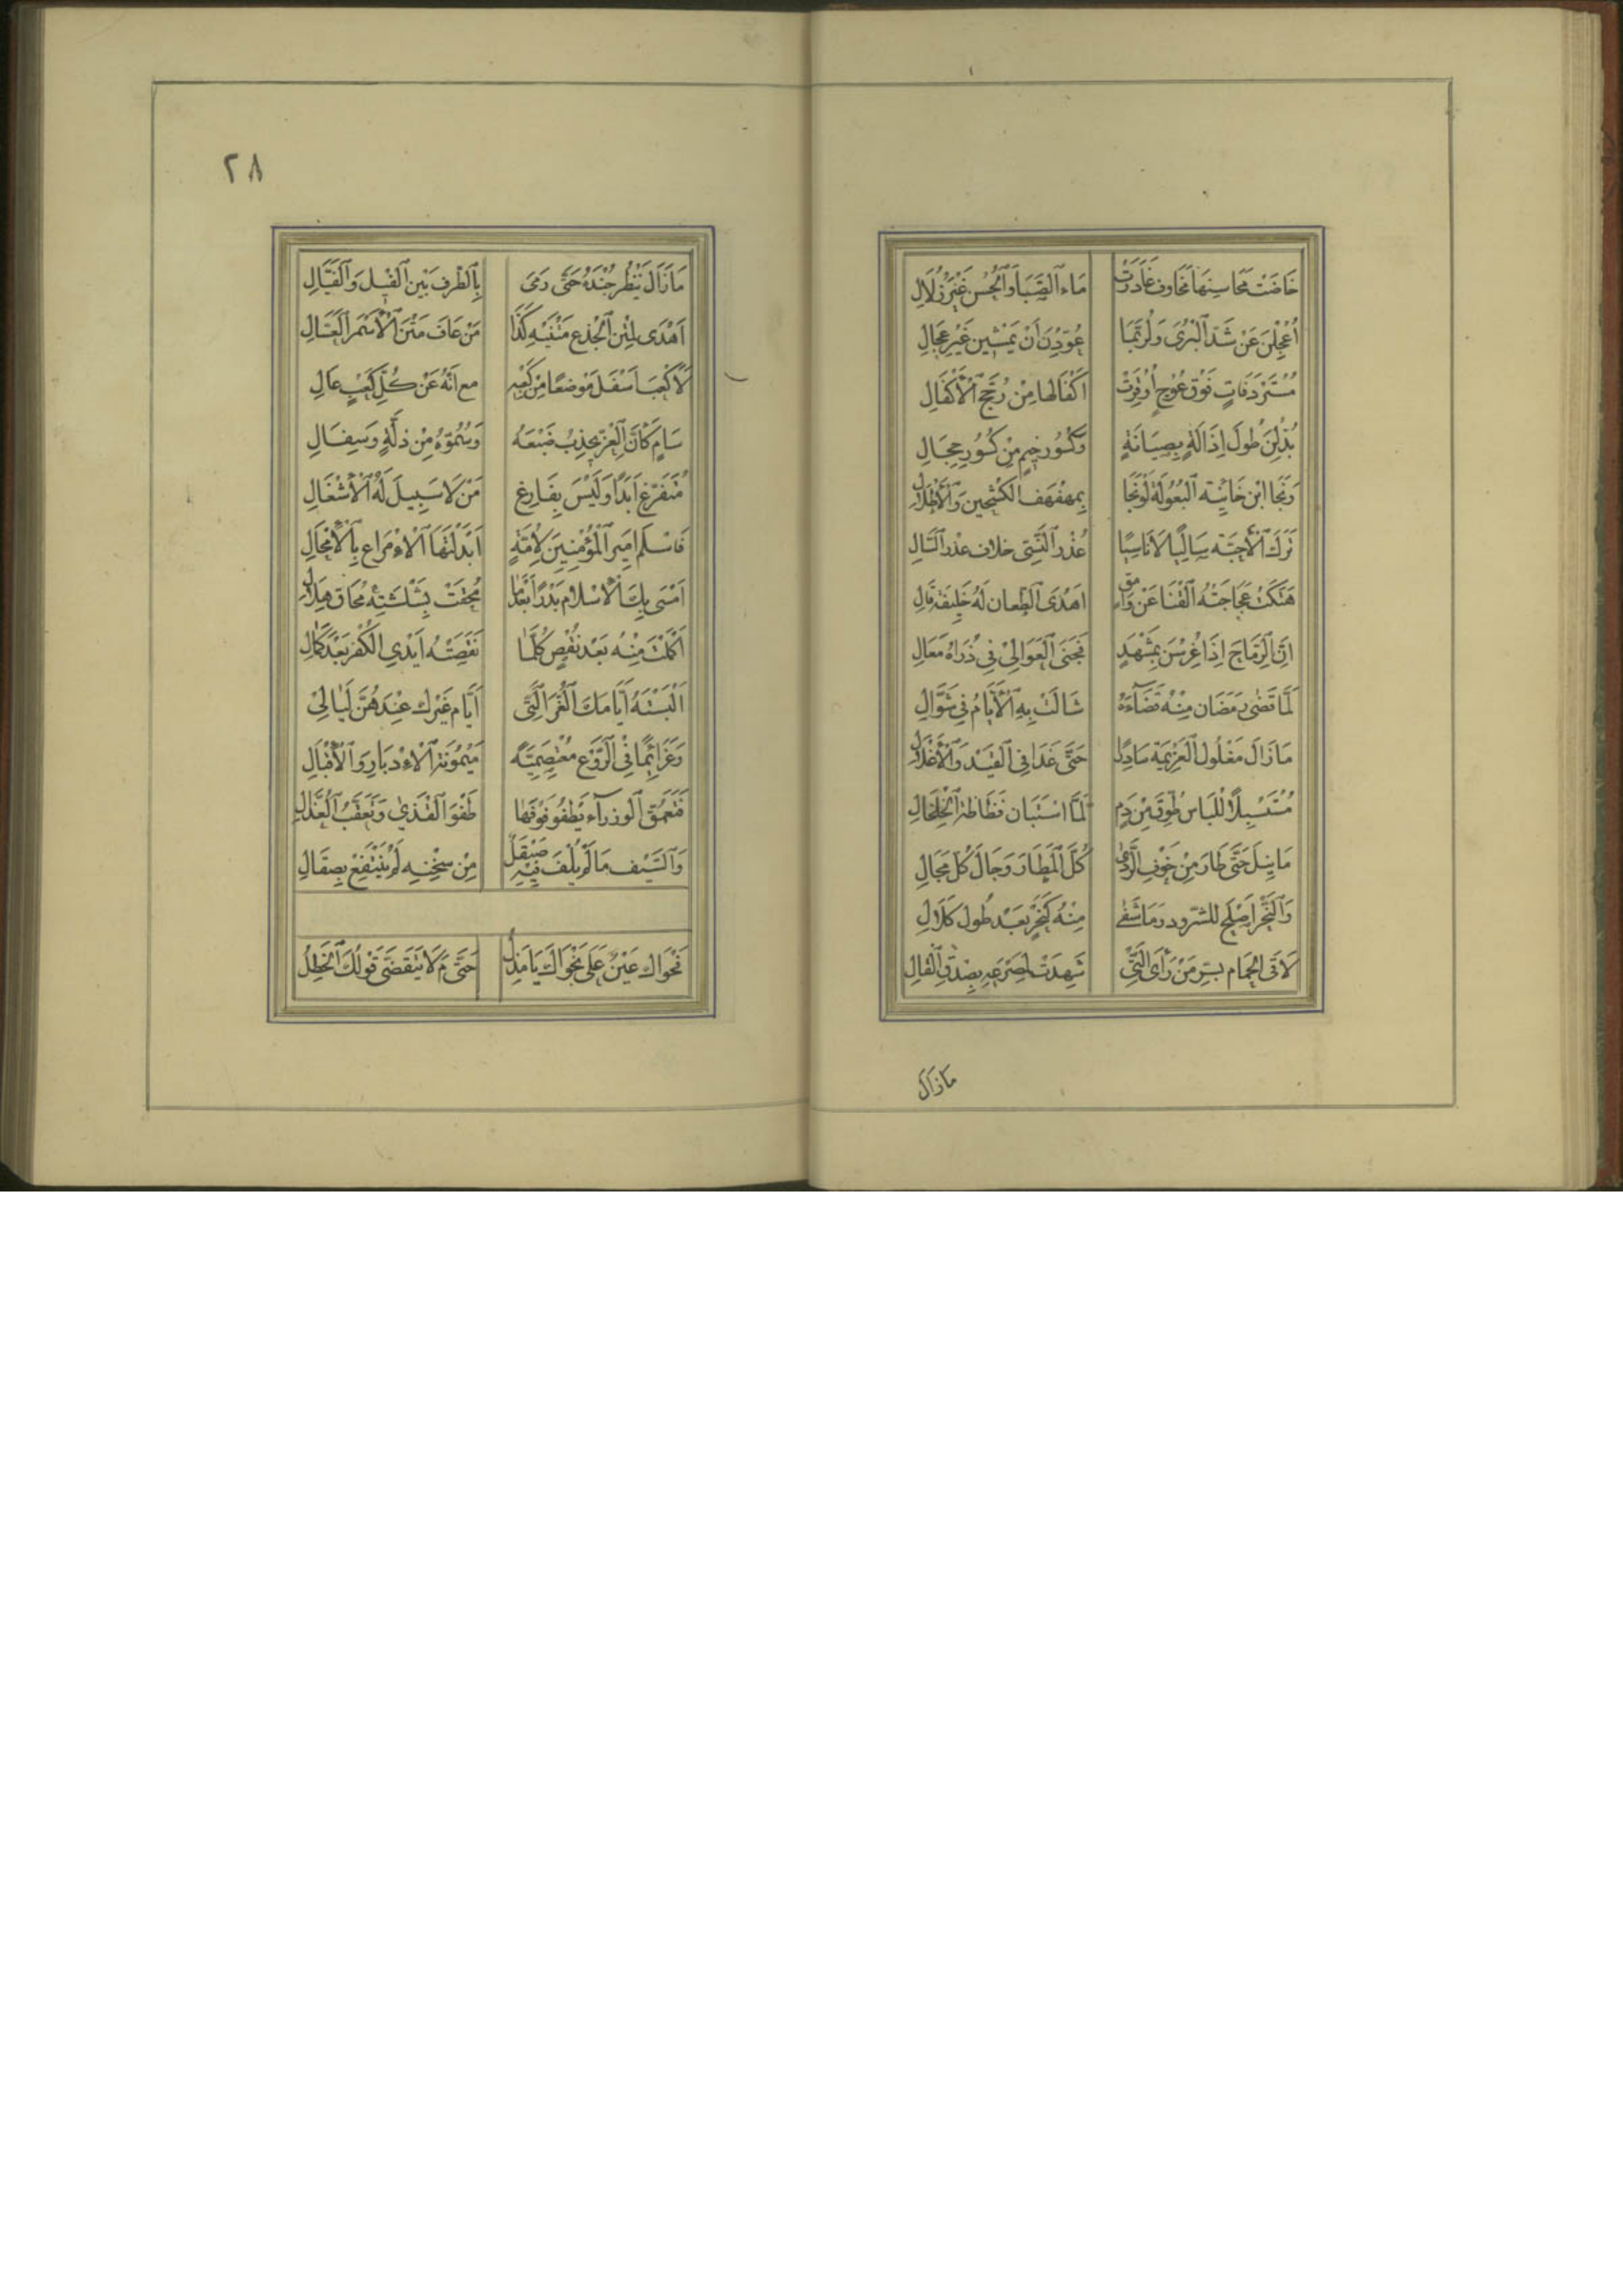 خَاضَتْ مَحَاسِنَهَا مَخَاوِفُ غَادَرَتْ مَاءَ الصِّبَا وَالْحُسْنِ غَيْرَ زُلَالِ
أُعْجِلْنَ عَنْ شَدِّ الْبُرَى وَلَرُبَّمَا عُوِّدْنَ أَنْ يَمْشِينَ غَيْرَ عِجَالِ
مُسْتَرْدَفَاتٍ فَوْقَ عُوجٍ أُوقِرَتْ أَكْفَالُهَا مِنْ رُجَّحِ الْأَكْفَالِ
بُدِّلْنَ طُولَ إِذَالَةٍ بِصِيَانَةٍ وَكُسُورَ خِيمٍ مِنْ كُسُورِ حِجَالِ
وَنَجَا ابْنُ خَائِنَةِ الْبُعُولَةِ لَوْ نَجَا بِمُهَفْهَفِ الْكَشْحَيْنِ وَالْآطَالِ
تَرَكَ الْأَحِبَّةَ سَالِيًا لَا نَاسِيًا عُذْرُ النَّسِيِّ خِلَافُ عُذْرِ السَّالِ
هَتَكَتْ عَجَاجَتَهُ الْقَنَا عَنْ وَامِقٍ أَهْدَى الطِّعَانُ لَهُ خَلِيقَةَ قَالِ
إِنَّ الرِّمَاحَ إِذَا غُرِسْنَ بِمَشْهَدٍ فَجَنَى الْعَوَالِي فِي ذُرَاهُ مَعَالِ
لَمَّا قَضَى رَمَضَانُ مِنْهُ قَضَاءَهُ شَالَتْ بِهِ الْأَيَّامُ فِي شَوَّالِ
مَا زَالَ مَغْلُولَ الْعَزِيمَةِ سَادِرًا حَتَّى غَدَا فِي الْقَيْدِ وَالْأَغْلَالِ
مُتَسَبِّلًا لِلْبَاسِ طَوْقٍ مِنْ دَمٍ لَمَّا اسْتَبَانَ فَظَاظَةَ الْخَلْخَالِ
مَا نِيلَ حَتَّى طَارَ مِنْ خَوْفِ الرَّدَى كُلَّ الْمَطَارِ وَجَالَ كُلَّ مَجَالِ
وَالنَّحْرُ أَصْلَحُ لِلشَّرُودِ وَمَا شَفَى مِنْهُ كَنَحْرٍ بَعْدَ طُولِ كَلَالِ
لَاقَى الْحِمَامَ بِسُرَّ مَنْ رَأَى الَّتِي شَهِدَتْ لِمَصْرَعِهِ بِصِدْقِ الْفَالِ
مَا زَالَ
٢٨
مَا زَالَ يَنْظُرُ جُنْدَهُ حَتَّى رَمَى بِالطَّرْفِ بَيْنَ الْفِيلِ وَالْفَيَّالِ
أَهْدَى لِمَتْنِ الْجِذْعِ مَتْنَيْهِ كَذَا مَنْ عَافَ مَتْنَ الْأَسْمَرِ الْعَسَّالِ
لَا كَعْبَ أَسْفَلُ مَوْضِعًا مِنْ كَعْبِهِ مَعَ أَنَّهُ عَنْ كُلِّ كَعْبٍ عَالِ
سَامٍ كَأَنَّ الْعِزَّ يَجْذِبُ ضَبْعَهُ وَسُمُوُّهُ مِنْ ذِلَّةٍ وَسِفَالِ
مُتَفَرِّغٌ أَبَدًا وَلَيْسَ بِفَارِغٍ مَنْ لَا سَبِيلَ لَهُ الْأَشْغَالِ
فَاسْلَمْ أَمِيرَ الْمُؤْمِنِينَ لِأُمَّةٍ أَبْدَلْتَهَا الْإِمْرَاعَ بِالْإِمْحَالِ
أَمْسَى بِكَ الْإِسْلَامُ بَدْرًا بَعْدَمَا مُحِقَتْ بَشَاشَتُهُ مُحَاقَ هِلَالِ
أَكْمَلْتَ مِنْهُ بَعْدَ نَقْصٍ كُلَّمَا نَقَصَتْهُ أَيْدِي الْكُفْرِ بَعْدَ كَمَالِ
أَلْبَسْتَهُ أَيَّامَكَ الْغُرَّ الَّتِي أَيَّامُ غَيْرِكَ عِنْدَهُنَّ لَيَالِي
وَعَزَائِمًا فِي الرَّوْعِ مُعْتَصِمِيَّةً مَيْمُونَةَ الْإِدْبَارِ وَالْإِقْبَالِ
فَتَعَمُّقُ الْوُزَرَاءِ يَطْفُو فَوْقَهَا طَفْوَ الْقَذَى وَتَعَقُّبُ الْعُذَّالِ
وَالسَّيْفُ مَا لَمْ يُلْفَ فِيهِ صَيْقَلٌ مِنْ سِنْخِهِ لَمْ يَنْتَفِعْ بِصِقَالِ
فَحْوَاكَ عَيْنٌ عَلَى نَجْوَاكَ يَا مَذِلُ حَتَّى مَ لَا يَتَقَضَّى قَوْلُكَ الْخَطِلُ